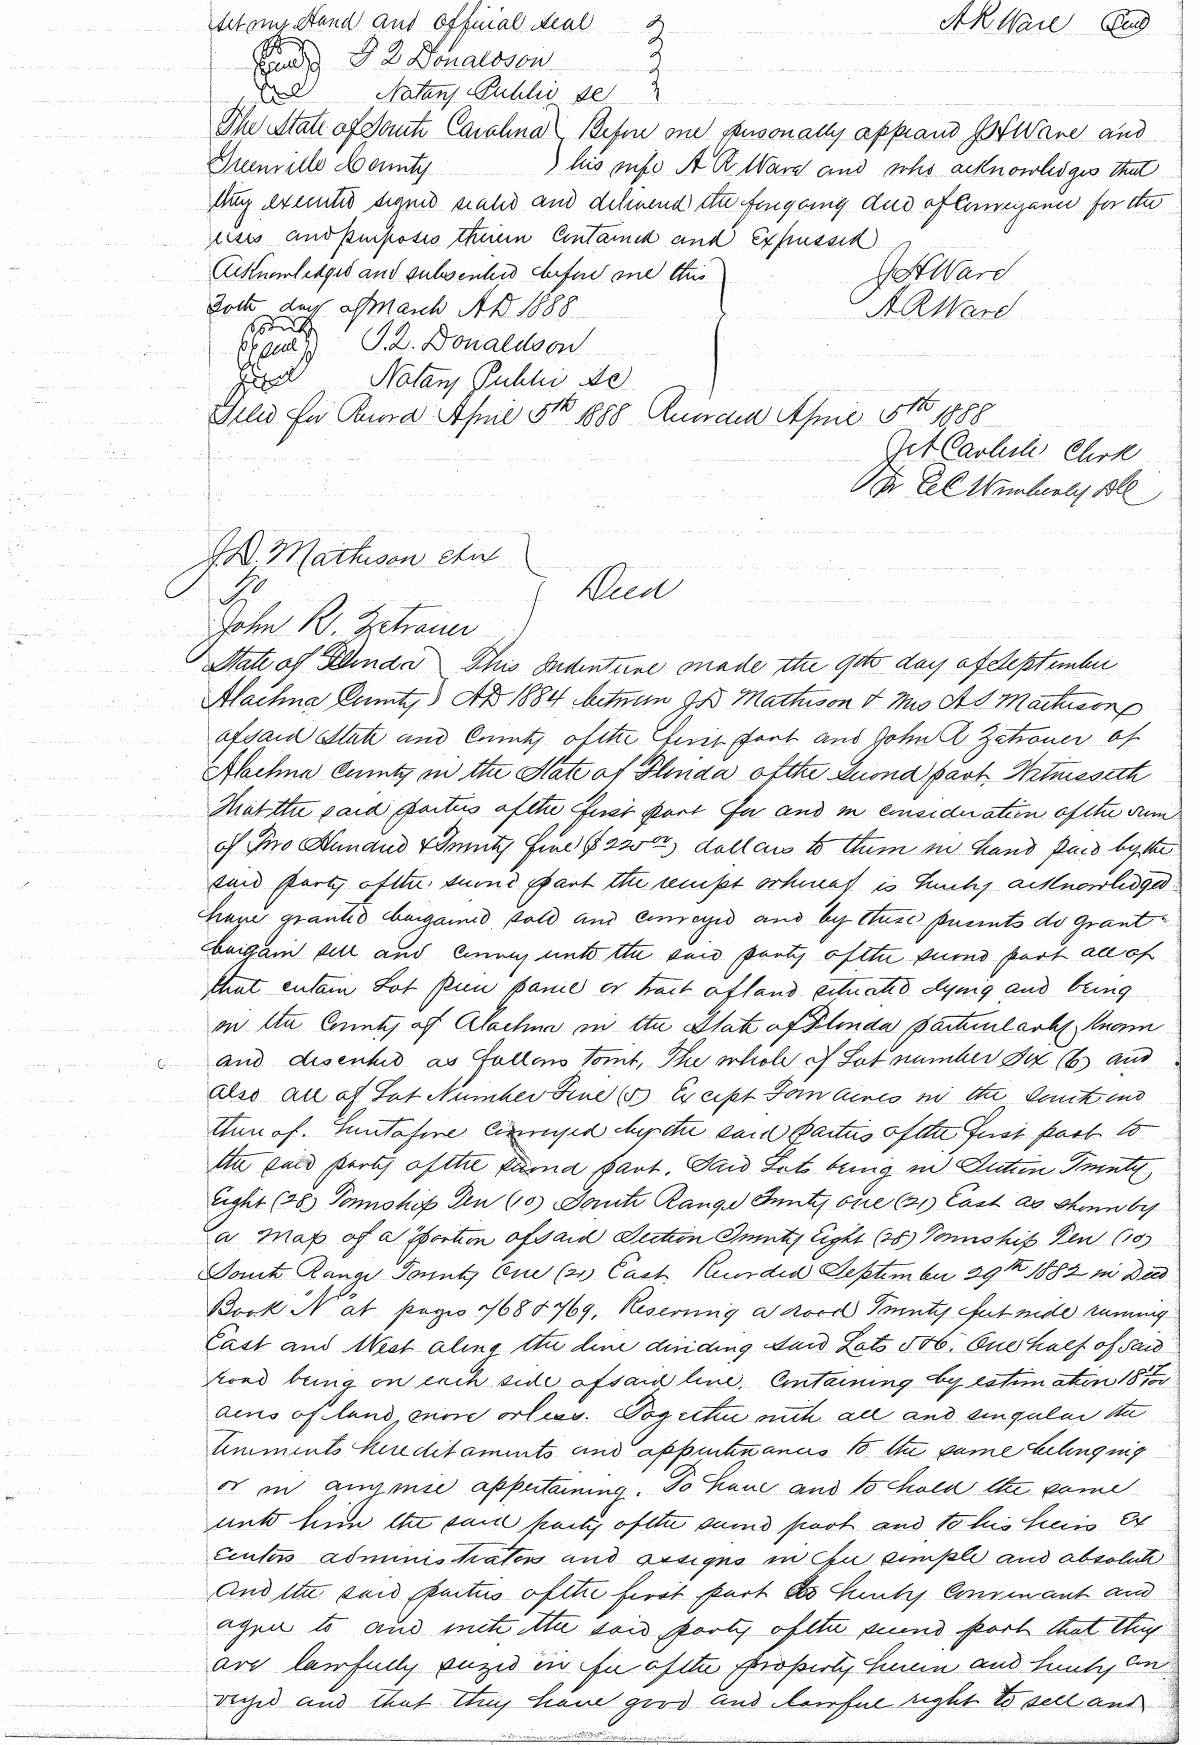 set my Hand and official seal A R Ware Seal
T Q Donaldson
Notary Public SC
The State of South Carolina Before me personally appeard J H Ware and
Greenville County his wife A R Ware and who acknowledges that
they executed signed sealed and delivered the foregoing deed of Conveyance for the
uses and purposes therein Contained and Expressed
Acknowledged and subscribed before me this J H Ward
30th day of March AD 1888 A R Ward
T. Q. Donaldson
Notary Public SC
Filed for Record April 5th 1888 Recorded April 5th 1888
Carlisle Clerk
Wimberly DC
J. D. Matheson etux
To Deed
John R. Zetrouer
State of Florida This Indenture made the 9th day of September
Alachua County AD 1884 between J D Matheson & Mrs A S Matheson
of said State and County of the first part and John R Zetrouer of
Alachua County in the State of Florida of the Second part. Witnesseth
That the said parties of the first part for and in consideration of the sum
of Two Hundred & Twenty five ($225 00) dollars to them in hand paid by the
said party of the second part the receipt whereof is hereby acknowledged
have granted bargained sold and conveyed and by these presents do grant
bargain sell and convey unto the said party of the second part all of
that certain Lot piece parcel or tract of land situated lying and being
in the County of Alachua in the State of Florida particularly known
and described as follows towit, The whole of Lot number Six (6) and
also all of Lot Number Five (5) Except Four acres in the South end
thereof. heretofore Conveyed by the said parties of the first part to
the said party of the second part. Said Lots being in Section Twenty
Eight (28) Township Ten (10) South Range Twenty one (21) East as shown by
a map of a portion of said Section Twenty Eight (28) Township Ten (10)
South Range Twenty One (21) East. Recorded September 29th 1882 in Deed
Book "N" at pages 768 & 769. Reserving a road Twenty feet wide running
East and West along the line dividing said Lots 5 & 6. One half of said
road being on each side of said line. Containing by estimation 18 17/100
acres of land, more or less. Together with all and singular the
tenements hereditaments and appurtenances to the same belonging
or in anywise appertaining. To have and to hold the same
unto him the said party of the second part and to his heirs Ex
ecutors administrators and assigns in fee simple and absolute
And the said parties of the first part do hereby Convenant and
agree to and with the said party of the second part that they
are lawfully seized in fee of the property herein and hereby con
veyed and that they have good and lawful right to sell and